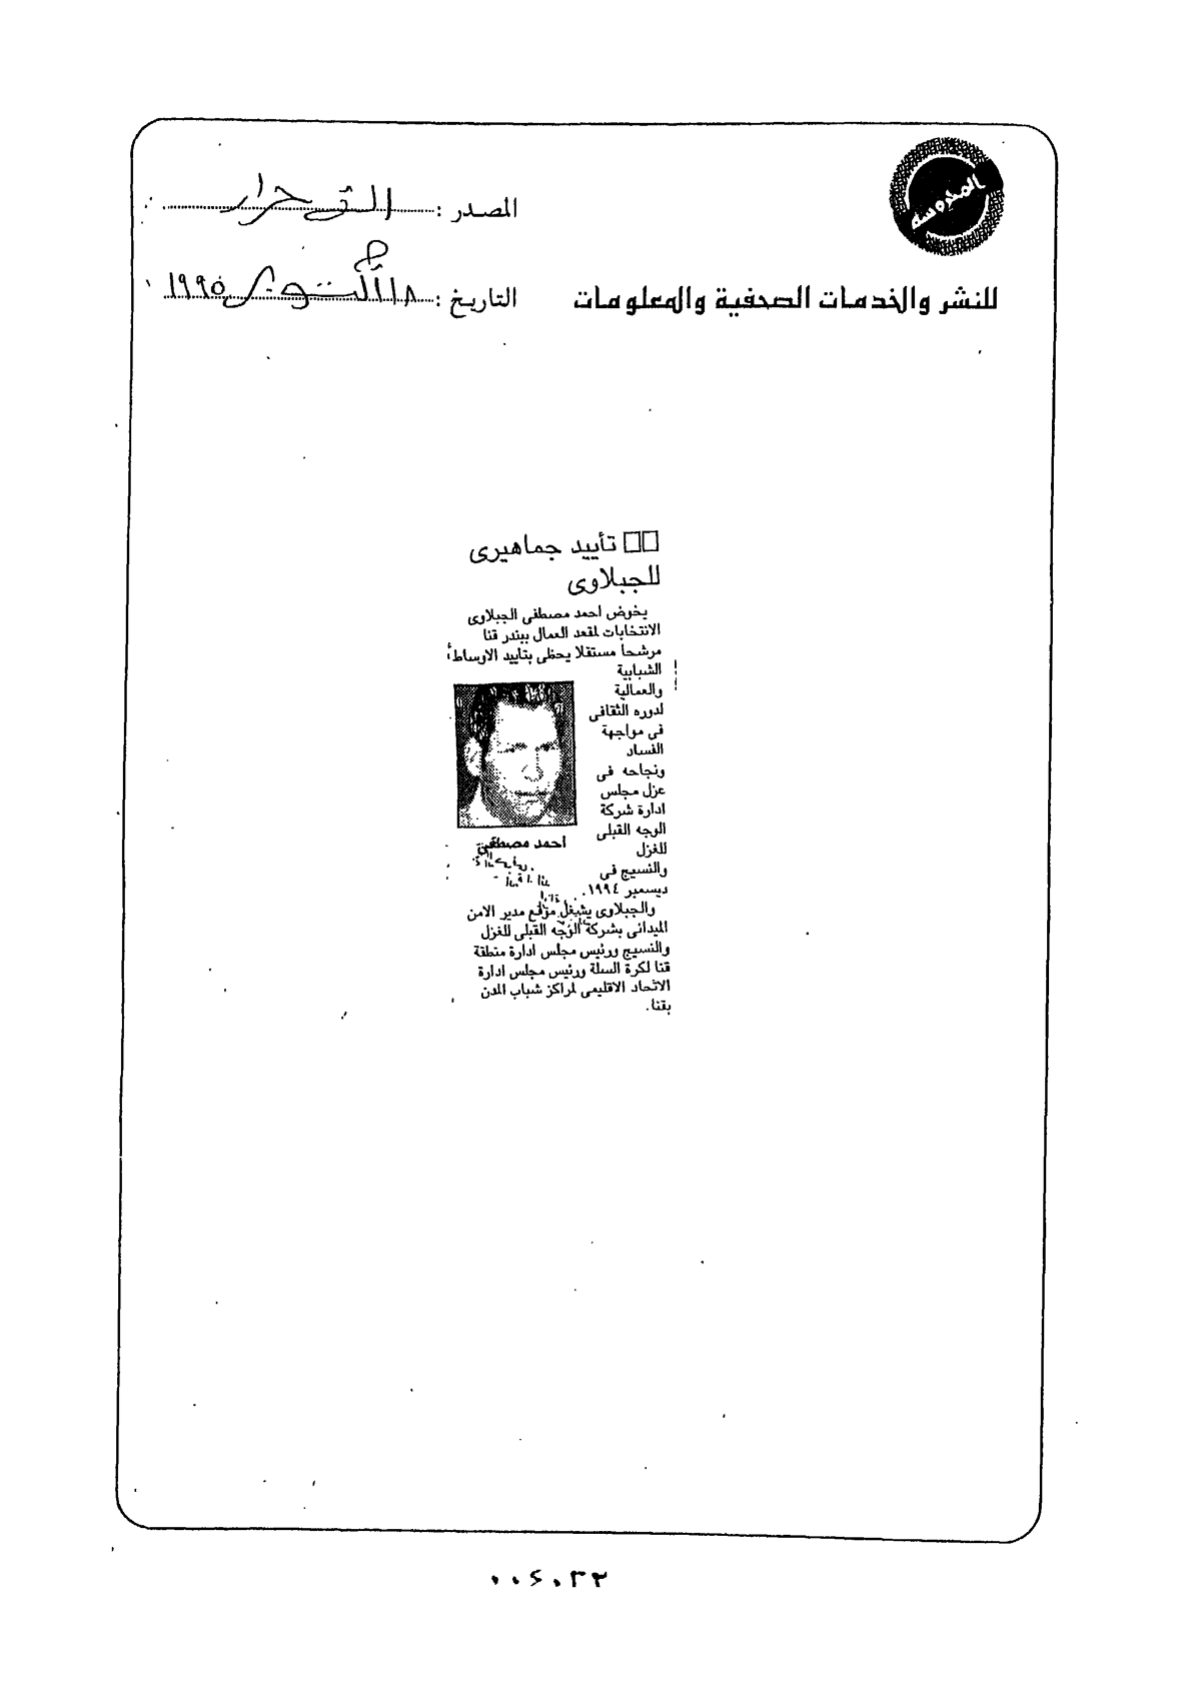 المحروسة
المصدر :
التاريخ : ١٨ أكتوبر ١٩٩٥
للنشر والخدمات الصحفية والمعلومات
تأييد جماهيرى
للجبلاوى
يخوض احمد مصطفى الجبلاوى
الانتخابات لمقعد العمال ببندر قنا
مرشحا مستقلا يحظى بتاييد الاوساط
الشبابية
والعمالية
لدوره الثقافى
فى مواجهة
الفساد
ونجاحه فى
عزل مجلس
ادارة شركة
الوجه القبلى
للغزل
والنسيج فى
ديسمبر ١٩٩٤.
احمد مصطفى
والجبلاوى يشغل موقع مدير الامن
الميدانى بشركة الوجه القبلى للغزل
والنسيج ورئيس مجلس ادارة منطقة
قنا لكرة السلة ورئيس مجلس ادارة
الاتحاد الاقليمى لمراكز شباب المدن
بقنا.